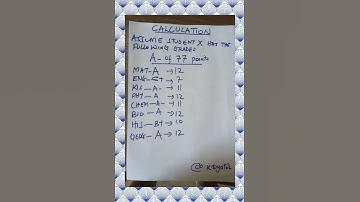 CALCULATION
ASSUME STUDENT X HAS THE
FOLLOWING GRADES
A- of 77 points
MAT-A → 12
ENG-C+ → 7
KIS-A- → 11
PHY-A → 12
CHEM-A- → 11
BIO-A → 12
HIS-B+ → 10
GEOG-A → 12